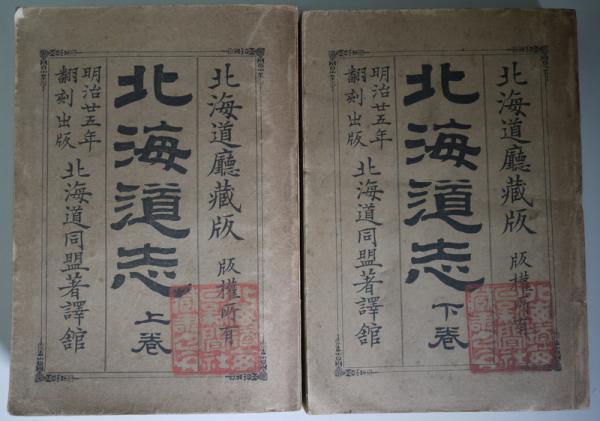 北海道廳藏版 版權所有
北海道志 上卷
明治廿五年
翻刻出版
北海道同盟著譯館
北海道廳藏版 版權所有
北海道志 下卷
明治廿五年
翻刻出版
北海道同盟著譯館